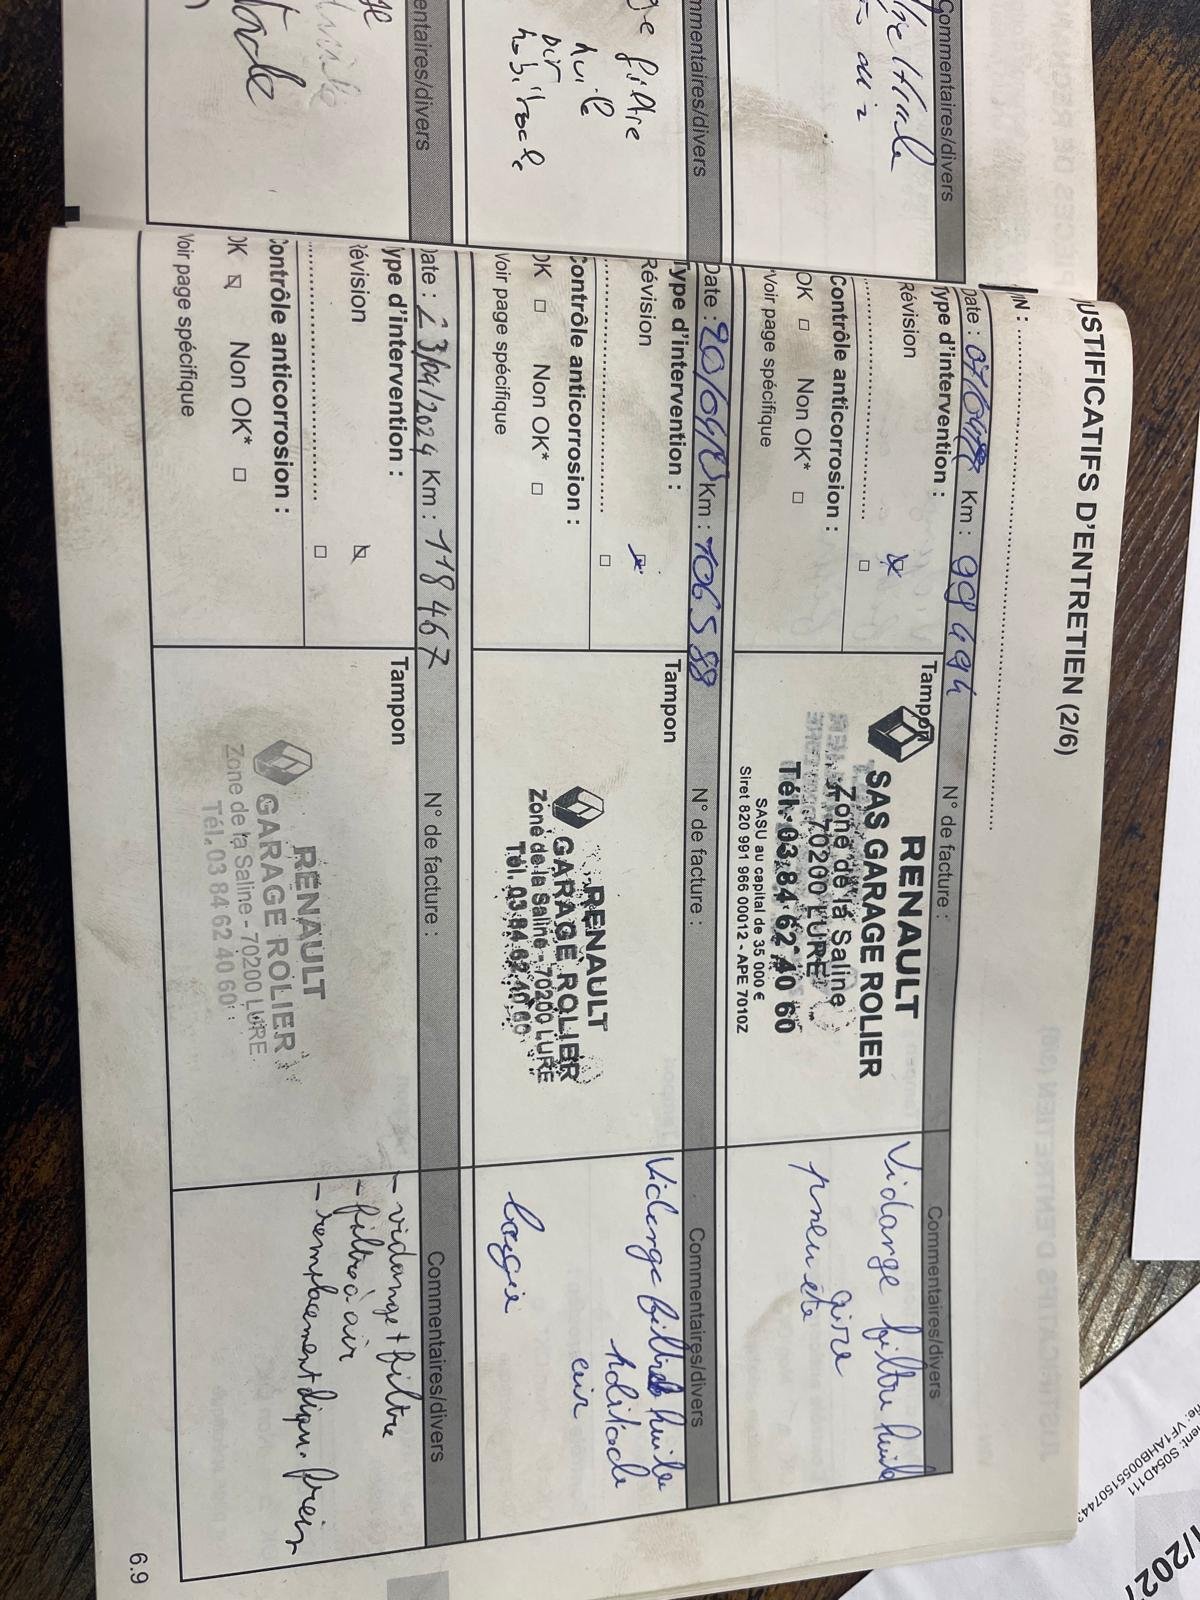 JUSTIFICATIFS D'ENTRETIEN (2/6)
Date : Km : 99 494 N° de facture : Commentaires/divers
Type d'intervention :
Révision
Contrôle anticorrosion :
OK □ Non OK* □
*Voir page spécifique
Tampon
RENAULT
SAS GARAGE ROLIER
Zone de la Saline
70200 LURE
Tél. 03 84 62 40 60
SASU au capital de 35 000 €
Siret 820 991 966 00012 - APE 7010Z
Vidange filtre huile
pneu été
Date : Km : 106 588 N° de facture : Commentaires/divers
Type d'intervention :
Révision
Contrôle anticorrosion :
OK □ Non OK* □
Voir page spécifique
Tampon
RENAULT
GARAGE ROLIER
Zone de la Saline - 70200 LURE
Tél. 03 84 62 40 60
Vidange filtre huile
habitacle
air
bougie
Date : 23/04/2024 Km : 118 467 N° de facture : Commentaires/divers
Type d'intervention :
Révision
Contrôle anticorrosion :
OK Non OK* □
Voir page spécifique
Tampon
RENAULT
GARAGE ROLIER
Zone de la Saline - 70200 LURE
Tél. 03 84 62 40 60
- vidange + filtre
- filtre à air
- remplacement liqu. frein
6.9
Commentaires/divers
filtre
huile
air
habitacle